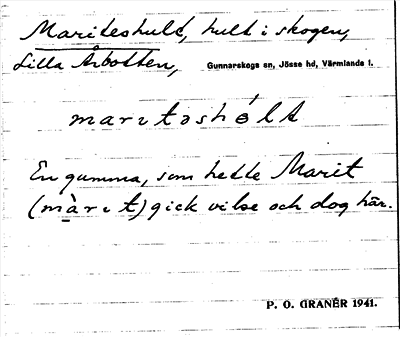 Mariteshult, hult i skogen,
Lilla Årbotten, Gunnarskogs sn, Jösse hd, Värmlands l.
marıtəshólt
En gumma, som hette Marit
(màrıt) gick vilse och dog här.
P. O. GRANÉR 1941.